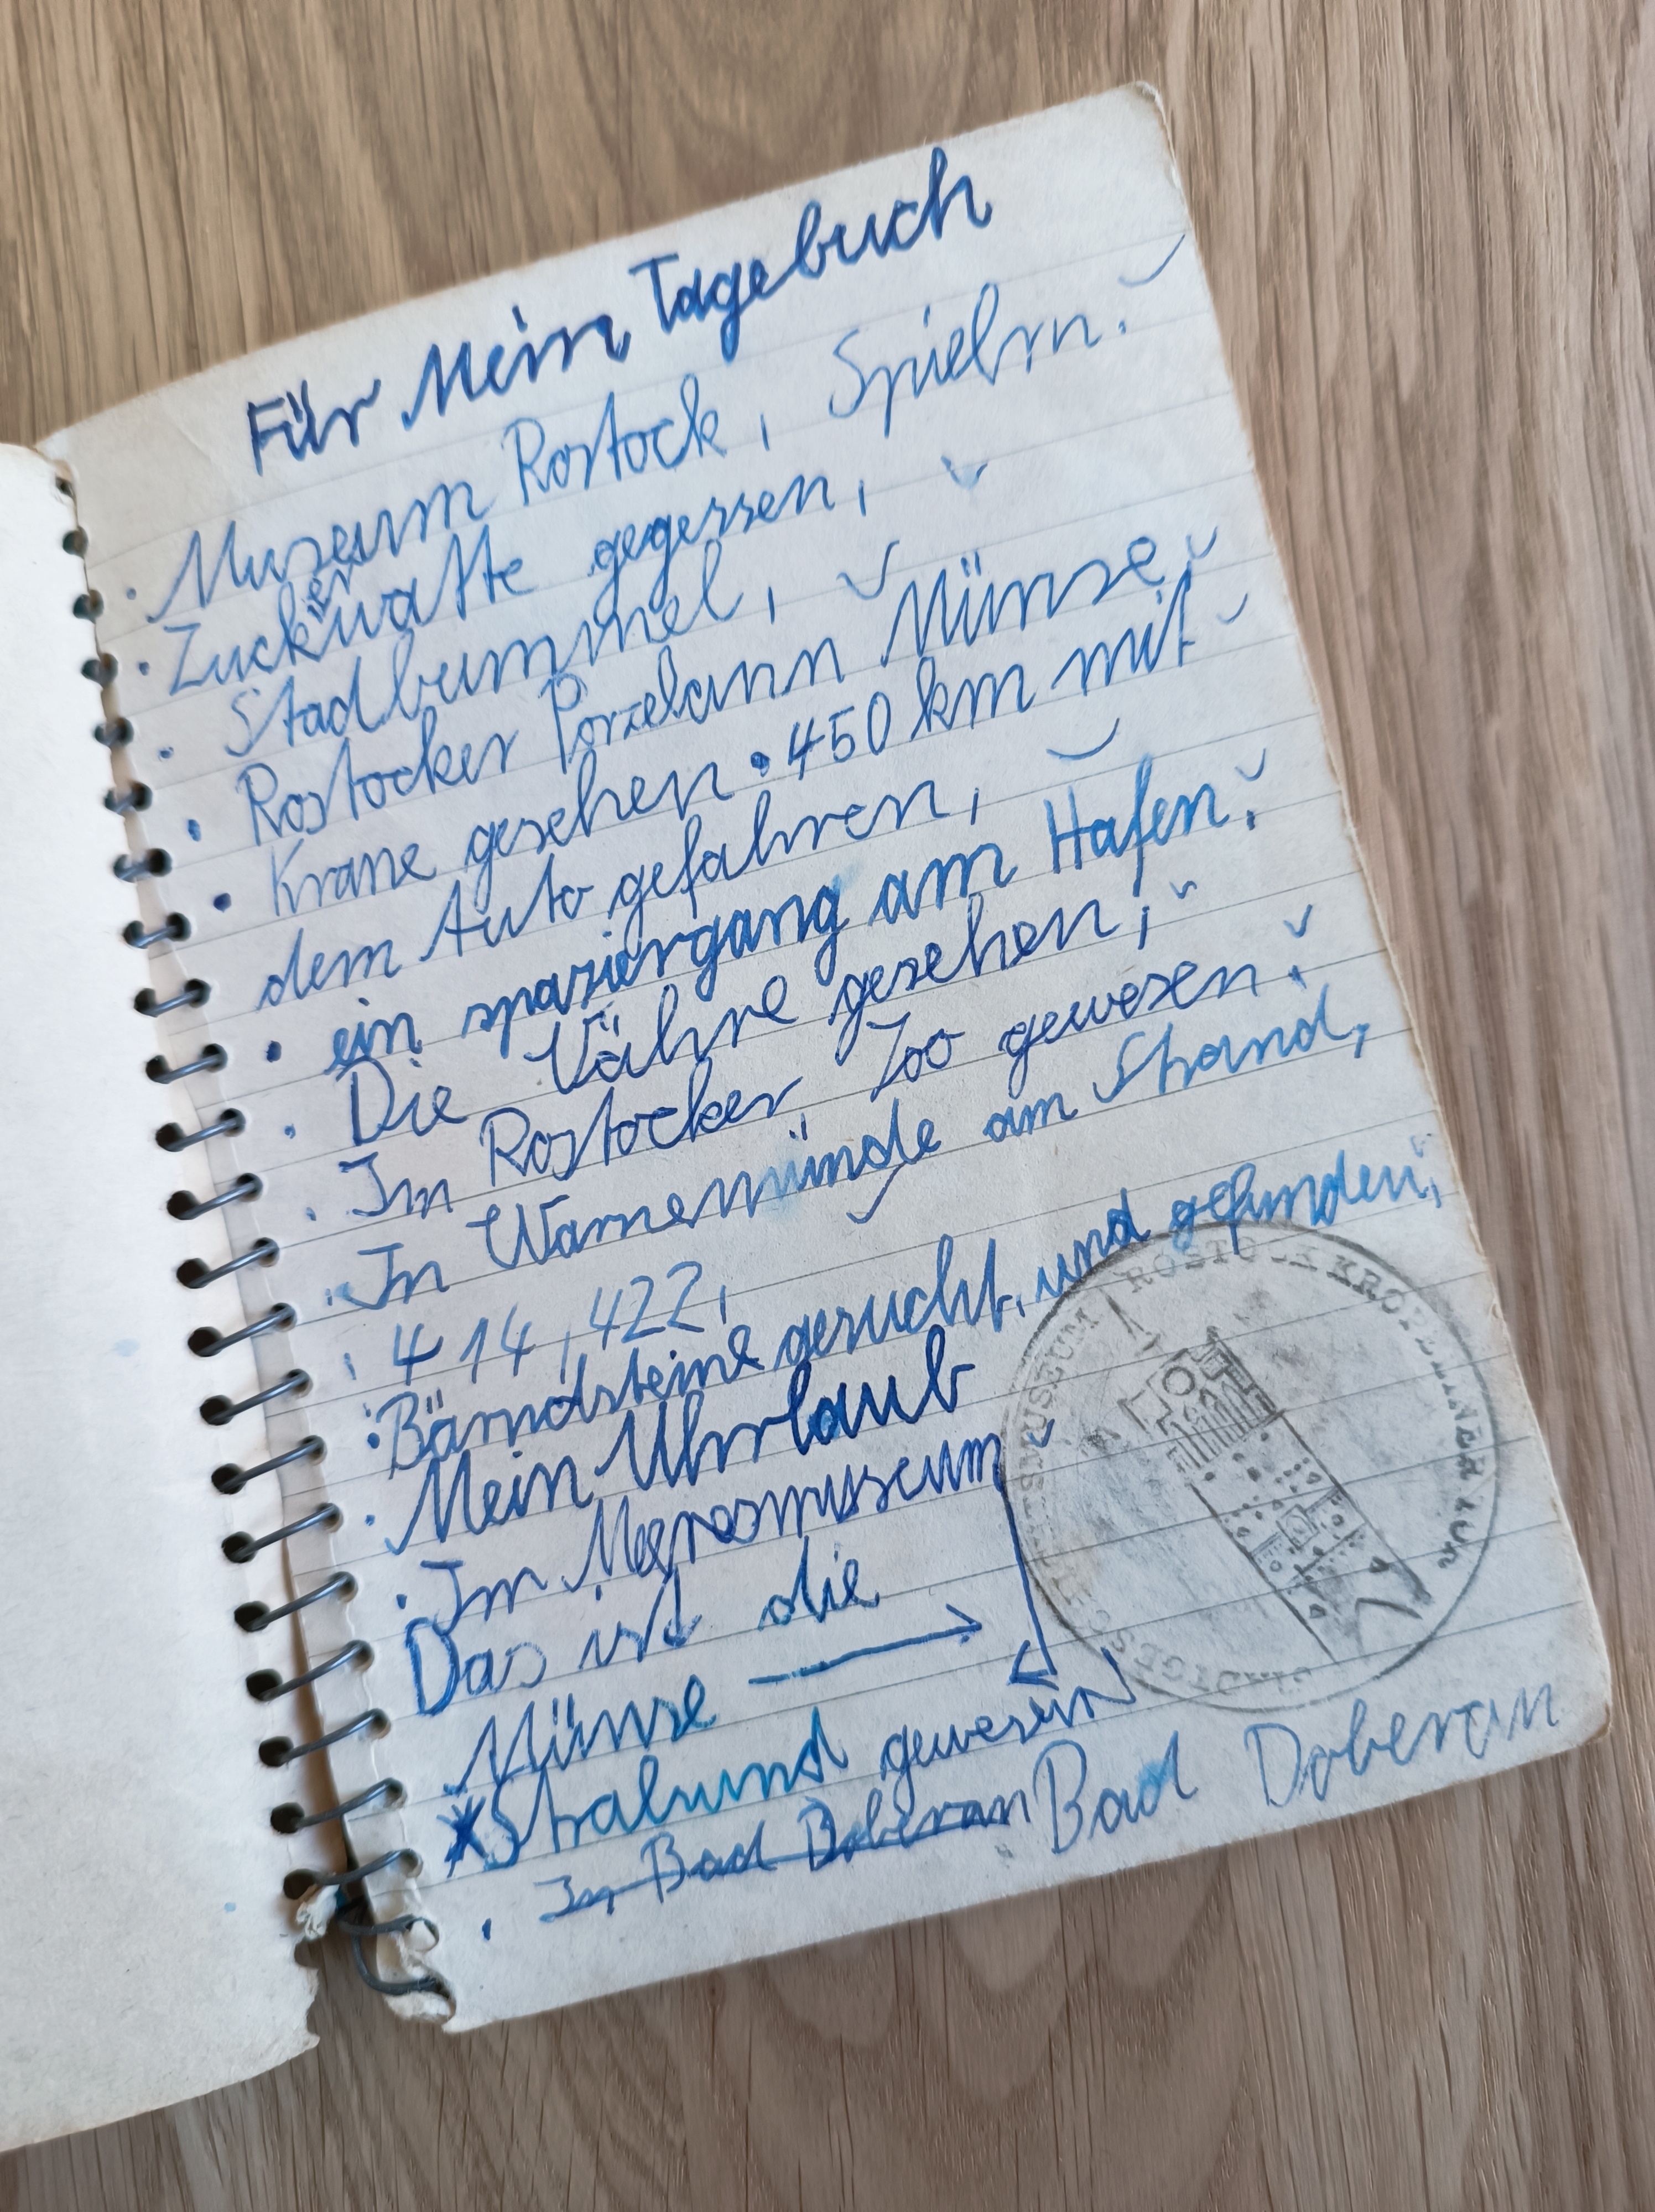 Für Mein Tagebuch
· Museum Rostock, Spieln.
· Zuckerwatte gegessen,
· Stadbummel,
· Rostocker Porzelann Münse,
· Krane gesehen · 450 km mit
dem Auto gefahren,
· ein spaziergang am Hafen,
· Die Vähre gesehen,
· Im Rostocker Zoo gewesen.
· In Warnemünde am Strand,
· 414, 422,
· Bärndsteine gesucht, und gefunden,
· Mein Uhrlaub
· Im Meresmuseum
Das ist die
Münse
Stralsund gewesen
· In Bad Doberan Bad Doberan
ROSTOCK KROPELINER TOR